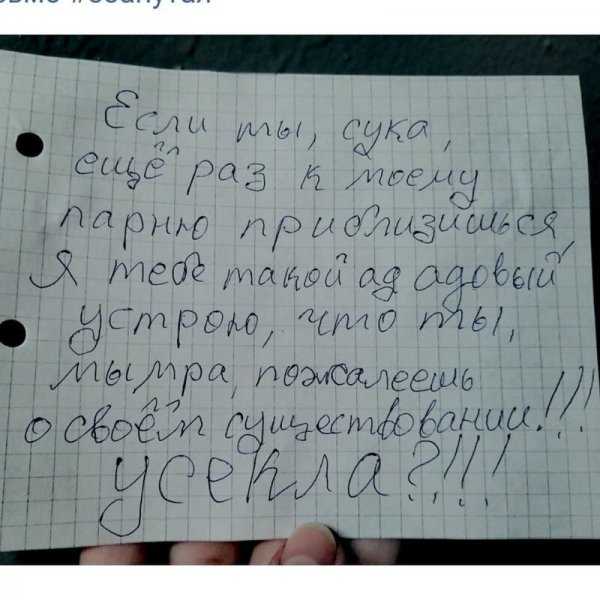 Если ты, сука,
ещё раз к моему
парню приблизишься,
Я тебе такой ад адовый
устрою, что ты,
мымра, пожалеешь
о своём существовании.!!!
усекла?!!!